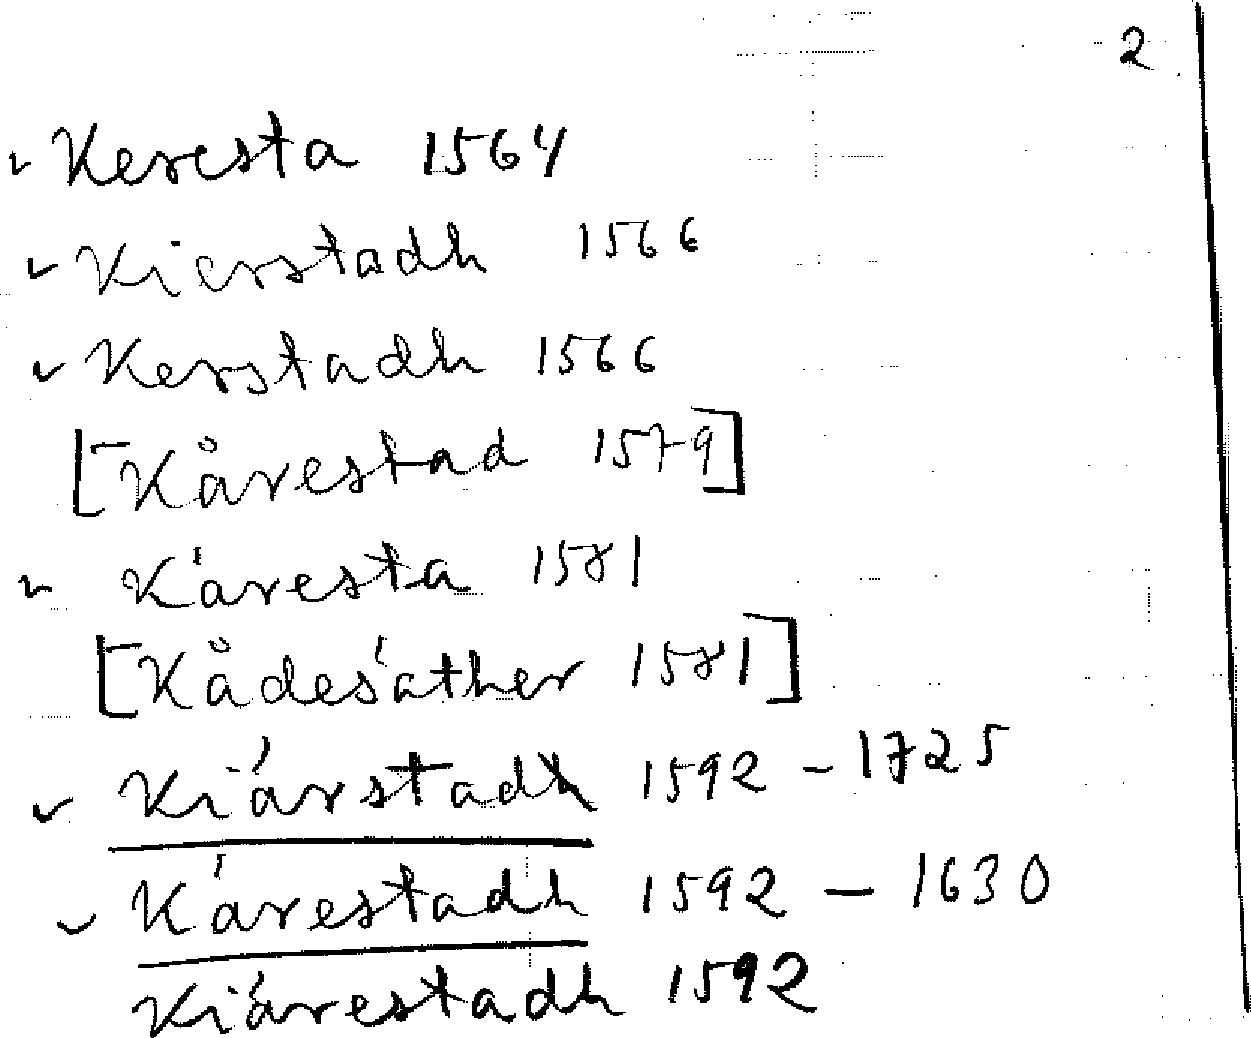 2
✓ Keresta 1564
✓ Kierstadh 1566
✓ Kerstadh 1566
[Kårestad 1579]
✓ Káresta 1581
[Kådesáther 1581]
✓ Kiárstad 1592 – 1725
✓ Kárestadh 1592 – 1630
Kiárestadh 1592